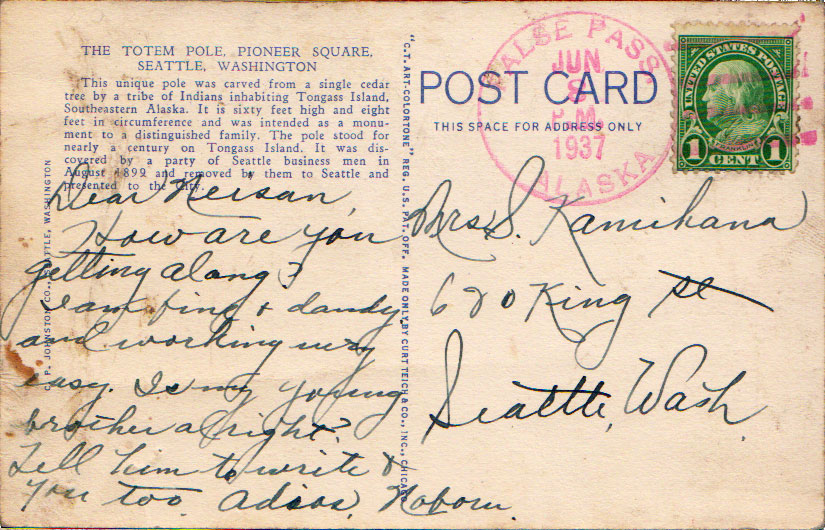 THE TOTEM POLE, PIONEER SQUARE,
SEATTLE, WASHINGTON
This unique pole was carved from a single cedar
tree by a tribe of Indians inhabiting Tongass Island,
Southeastern Alaska. It is sixty feet high and eight
feet in circumference and was intended as a monu-
ment to a distinguished family. The pole stood for
nearly a century on Tongass Island. It was dis-
covered by a party of Seattle business men in
August 1899 and removed by them to Seattle and
presented to the city.
C. P. JOHNSTON CO., SEATTLE, WASHINGTON
Dear Neisan,
How are you
getting along?
I am fine & dandy
and working very
easy. Is my young
brother alright?
Tell him to write &
you too. Adios,
"C.T. ART-COLORTONE" REG. U.S. PAT. OFF. MADE ONLY BY CURT TEICH & CO., INC., CHICAGO
POST CARD
THIS SPACE FOR ADDRESS ONLY
FALSE PASS
JUN
8
P.M.
1937
ALASKA
UNITED STATES POSTAGE
FRANKLIN
1 CENT 1
Mrs. S. Kamihana
620 King St
Seattle, Wash.